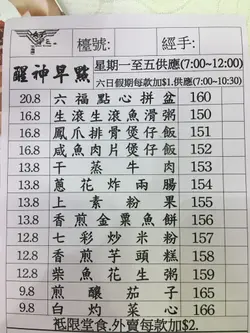 檯號:
經手:
醒神早點
星期一至五供應(7:00~12:00)
六日假期每款加$1.供應(7:00~10:30)
20.8 六福點心拼盆 160
16.8 生滾生滾魚滑粥 150
16.8 鳳爪排骨煲仔飯 151
16.8 咸魚肉片煲仔飯 152
13.8 干蒸牛肉 153
13.8 蔥花炸兩腸 154
13.8 上素粉果 155
13.8 香煎金粟魚餅 156
12.8 七彩炒米粉 157
12.8 香煎芋頭糕 158
12.8 柴魚花生粥 159
9.8 煎釀茄子 165
9.8 白灼菜心 166
祗限堂食,外賣每款加$2.